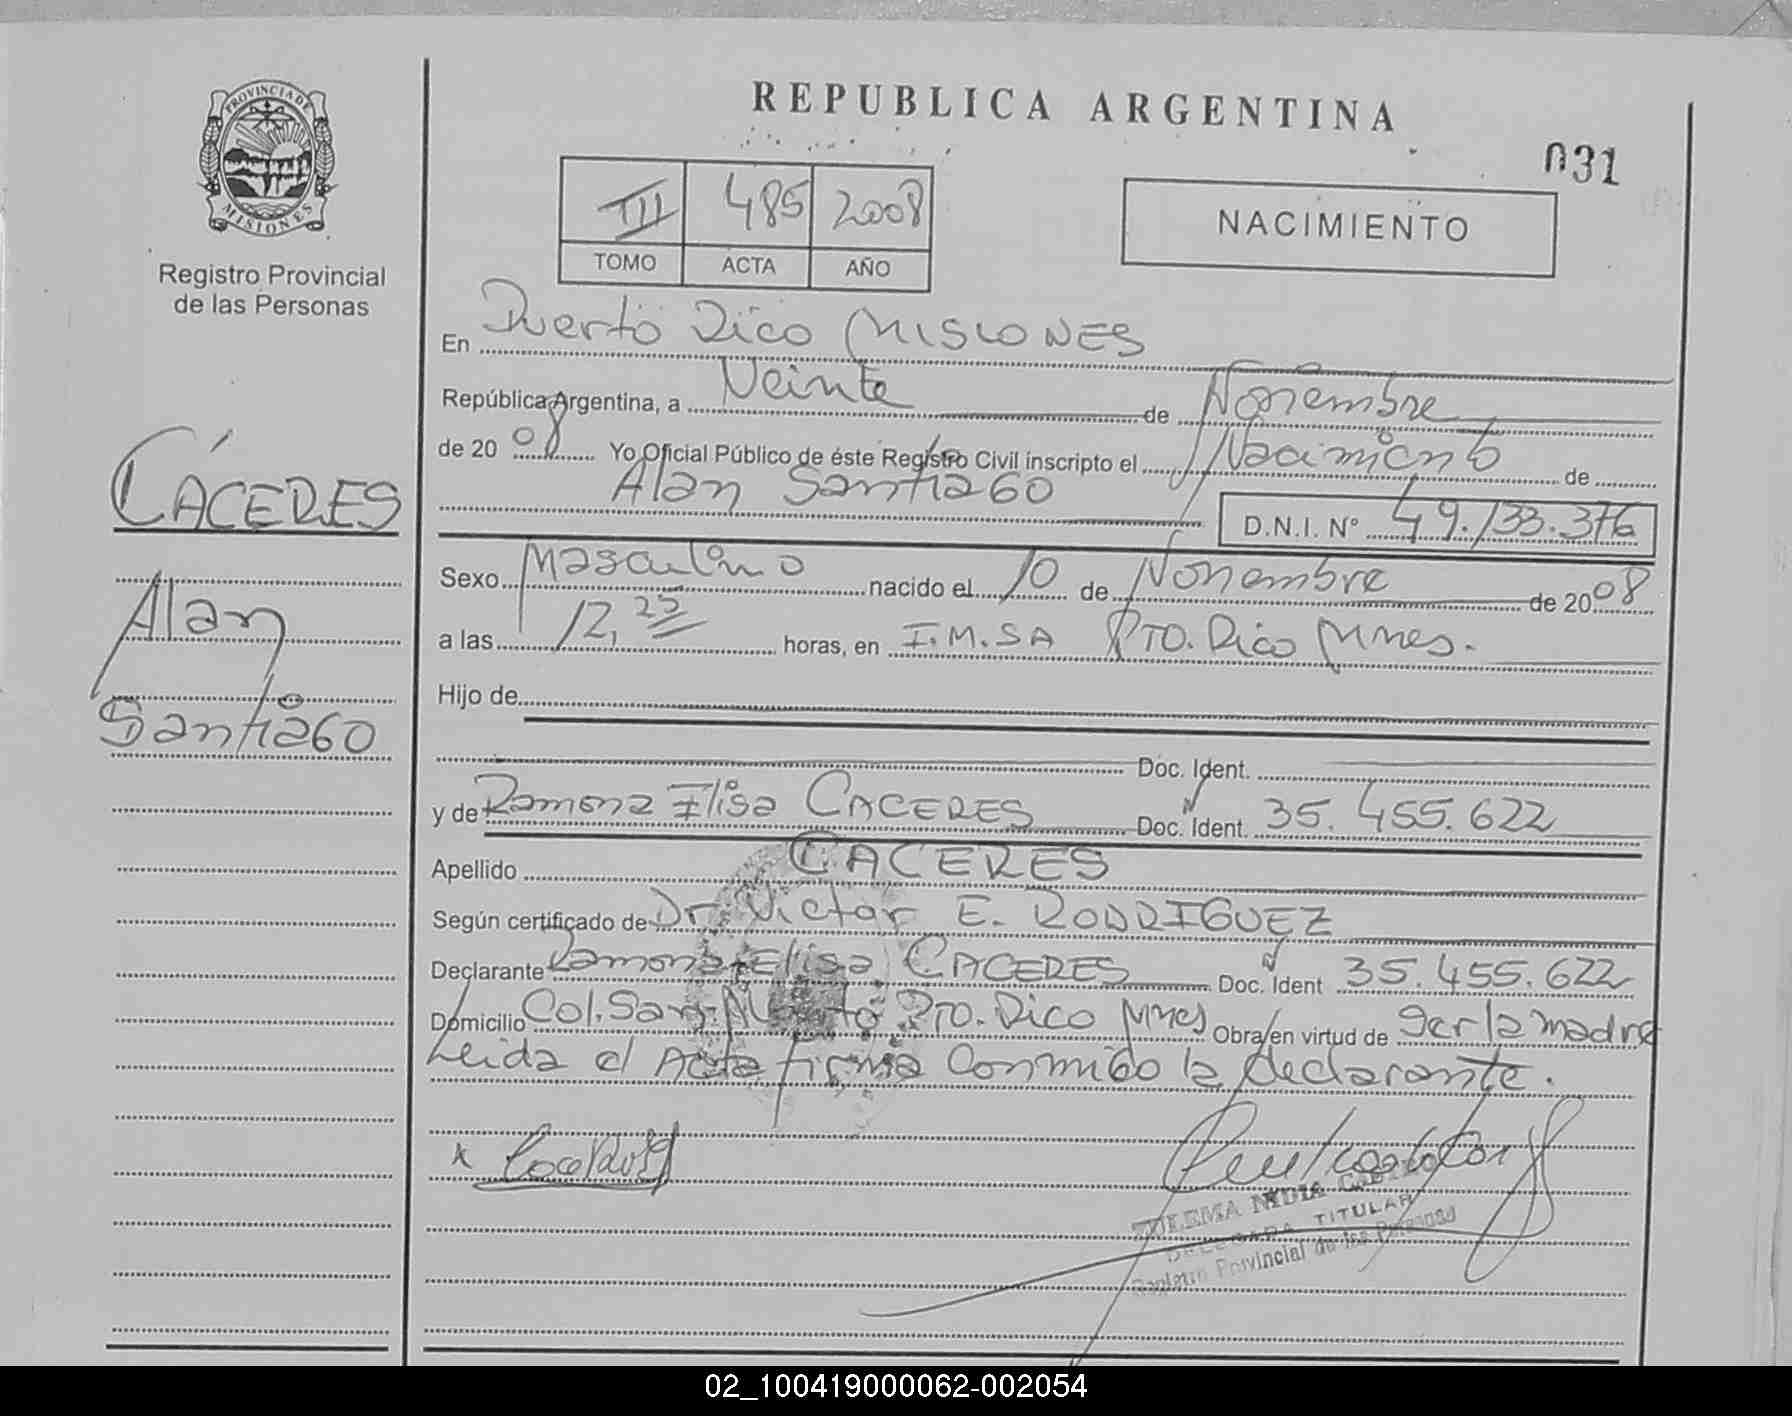 REPUBLICA ARGENTINA
031
PROVINCIA DE MISIONES
Registro Provincial
de las Personas
III 485 2008
TOMO ACTA AÑO
NACIMIENTO
CÁCERES
Alan
Santiago
En Puerto Rico MISIONES
República Argentina, a Veinte de Noviembre
de 20 08 Yo Oficial Público de éste Registro Civil inscripto el Nacimiento de
Alan Santiago
D.N.I. N° 49.133.376
Sexo Masculino nacido el 10 de Noviembre de 20 08
a las 12,25 horas, en I.M.SA PTO. Rico Mnes.
Hijo de
Doc. Ident.
y de Ramona Elisa CACERES Doc. Ident. 35.455.622
Apellido CACERES
Según certificado de Dr. Victor E. RODRIGUEZ
Declarante Ramona Elisa CACERES Doc. Ident 35.455.622
Domicilio Col. San Alberto PTO. Rico Mnes Obra en virtud de ser la madre
Leida el Acta firma conmigo la declarante.
x
ZULEMA NIDIA
DELEGADA TITULAR
Registro Provincial de las Personas
02_100419000062-002054